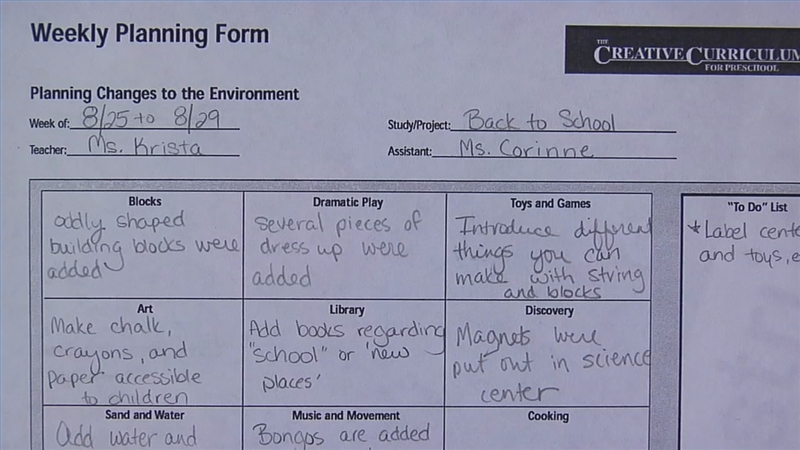 Weekly Planning Form
THE
CREATIVE CURRICULUM
FOR PRESCHOOL
Planning Changes to the Environment
Week of: 8/25 to 8/29
Study/Project: Back to School
Teacher: Ms. Krista
Assistant: Ms. Corinne
Blocks
oddly shaped
building blocks were
added
Dramatic Play
several pieces of
dress up were
added
Toys and Games
Introduce different
things you can
make with string
and blocks
"To Do" List
*Label cente
and toys, e
Art
Make chalk,
crayons, and
paper accessible
to children
Library
Add books regarding
"school" or 'new
places'
Discovery
Magnets were
put out in science
center
Sand and Water
Add water and
Music and Movement
Bongos are added
Cooking